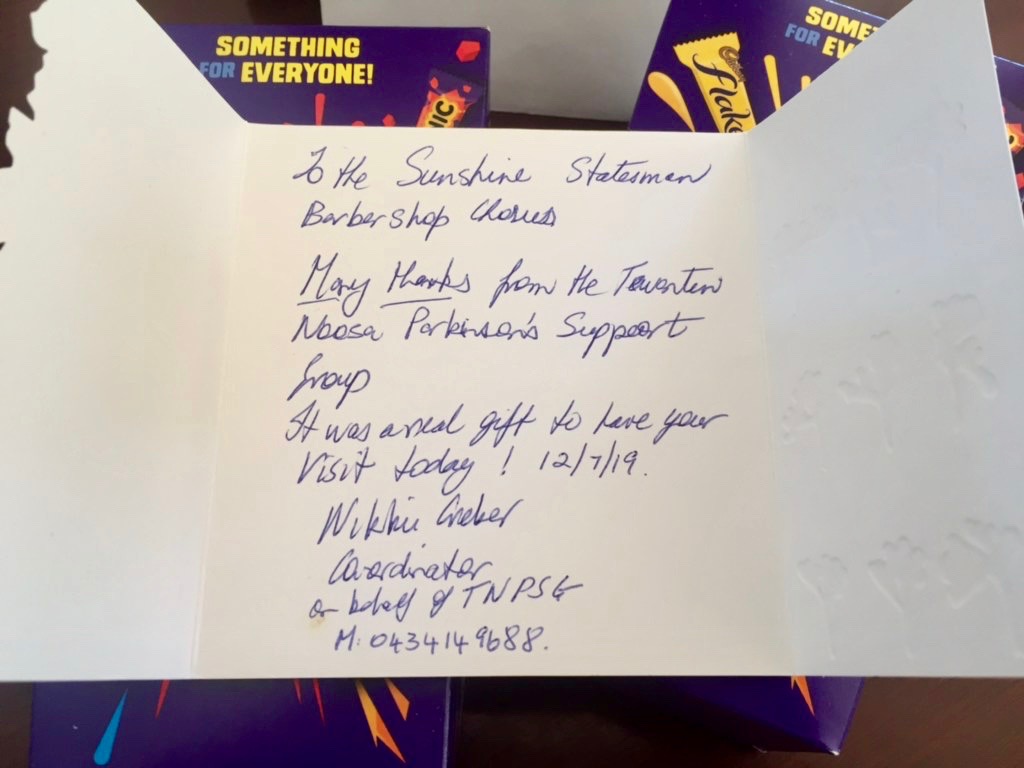 SOMETHING
FOR EVERYONE!
NIC
SOME
FOR EV
Flake
To the Sunshine Statesman
Barbershop Chorus
Many thanks from the Tewantin
Noosa Parkinson's Support
Group
It was a real gift to have your
Visit today! 12/7/19.
Nikkii Greber
Coordinator
on behalf of TNPSG
M: 0434149688.